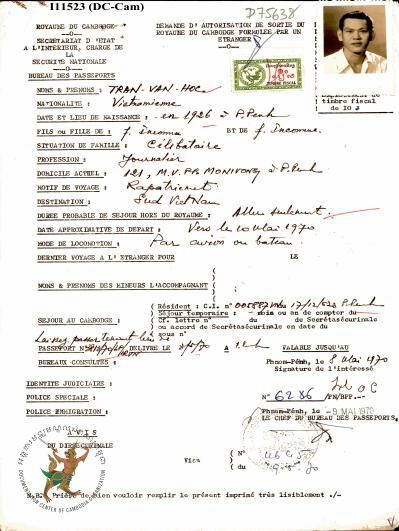 I11523 (DC-Cam)
D75638
ROYAUME DU CAMBODGE
---o---
SECRETARIAT D'ETAT
A L'INTERIEUR, CHARGE DE
LA SECURITE NATIONALE
---o---
BUREAU DES PASSEPORTS
DEMANDE D'AUTORISATION DE SORTIE DU
ROYAUME DU CAMBODGE FORMULEE PAR UN
ETRANGER
timbre fiscal
de 10 J
NOMS & PRENOMS : TRAN-VAN-HOC
NATIONALITE : Vietnamienne
DATE ET LIEU DE NAISSANCE : en 1926 à P.Penh
FILS ou FILLE DE : f. Inconnu ET DE f. Inconnue.
SITUATION DE FAMILLE : Célibataire
PROFESSION : Journalier
DOMICILE ACTUEL : 121, M.V. PR MONIVONG à P.Penh
MOTIF DE VOYAGE : Rapatriement
DESTINATION : Sud VietNam
DUREE PROBABLE DE SEJOUR HORS DU ROYAUME : Aller seulement
DATE APPROXIMATIVE DE DEPART : Vers le 10 Mai 1970
MODE DE LOCOMOTION : Par avion ou bateau.
DERNIER VOYAGE A L'ETRANGER POUR LE
NOMS & PRENOMS DES MINEURS L'ACCOMPAGNANT
Résident : C.I. n° 17/12/62 P.Penh
SEJOUR AU CAMBODGE :
Séjour temporaire : mois ou an de compter du
Cf. lettre n° du de Secrétasécurinale
ou accord de Secrétasécurinale en date du
sous n°
Laissez passer tenant lieu de
PASSEPORT N° DELIVRE LE 70 A VALABLE JUSQU'AU
BUREAUX CONSULTES :
Phnom-Pénh, le 8 Mai 1970
Signature de l'intéressé
IDENTITE JUDICIAIRE :
POLICE SPECIALE :
POLICE IMMIGRATION :
N° 6286 /PN/BPP.-
Phnom-Pénh, le -9 MAI 1970
LE CHEF DU BUREAU DES PASSEPORTS,
A V I S
DU DIRSECURINALE
Visa
( N°
( du
DOCUMENTATION CENTER OF CAMBODIA ORGANIZATION
N.B: Prière de bien vouloir remplir le présent imprimé très lisiblement ./-